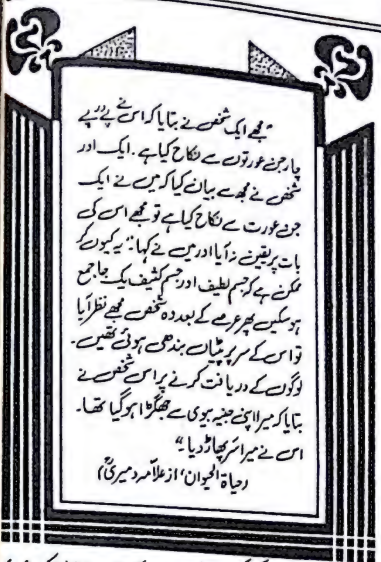 "مجھے ایک شخص نے بتایا کہ اس نے پے در پے
چار جن عورتوں سے نکاح کیا ہے۔ ایک اور
شخص نے مجھ سے بیان کیا کہ میں نے ایک
جن عورت سے نکاح کیا ہے تو مجھے اس کی
بات پر یقین نہ آیا اور میں نے کہا: "یہ کیوں کر
ممکن ہے کہ جسم لطیف اور جسم کثیف یک جا جمع
ہو سکیں پھر عرصے کے بعد وہ شخص مجھے نظر آیا
تو اس کے سر پر پٹیاں بندھی ہوئی تھیں۔
لوگوں کے دریافت کرنے پر اس شخص نے
بتایا کہ میرا اپنی جنیہ بیوی سے جھگڑا ہو گیا تھا۔
اس نے میرا سر پھاڑ دیا۔"
(حیاۃ الحیوان' از علامہ دمیریؒ)